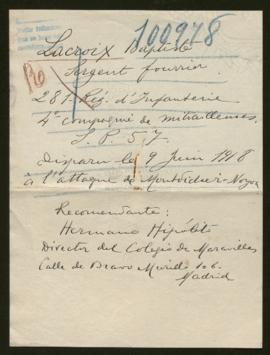 100978
Lacroix Baptiste
Sergent fourrier
281 Rég. d'Infanterie
4e Compagnie de mitrailleuses
S. P. 57
Disparu le 9 Juin 1918
à l'attaque de Montdidier-Noyon
Recomendante:
Hermano Hipólito
Director del Colegio de Maravillas
Calle de Bravo Murillo 106
Madrid